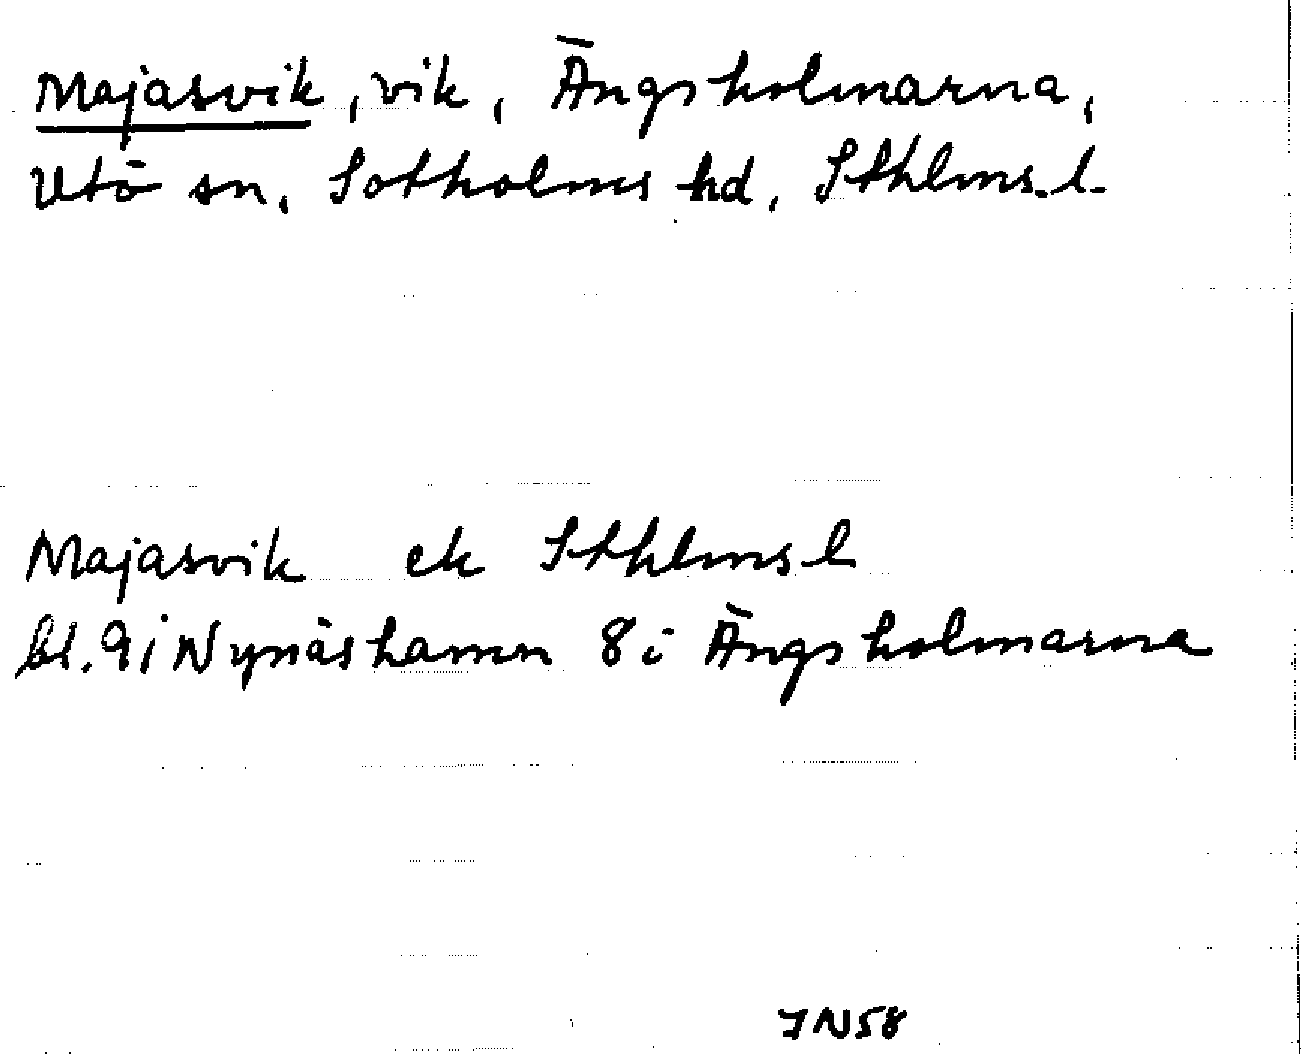 Majasvik, vik, Ängsholmarna,
Utö sn, Sotholms hd, Sthlms l.
Majasvik ek Sthlms l
bl. 9i Nynäshamn 8i Ängsholmarna
JN58